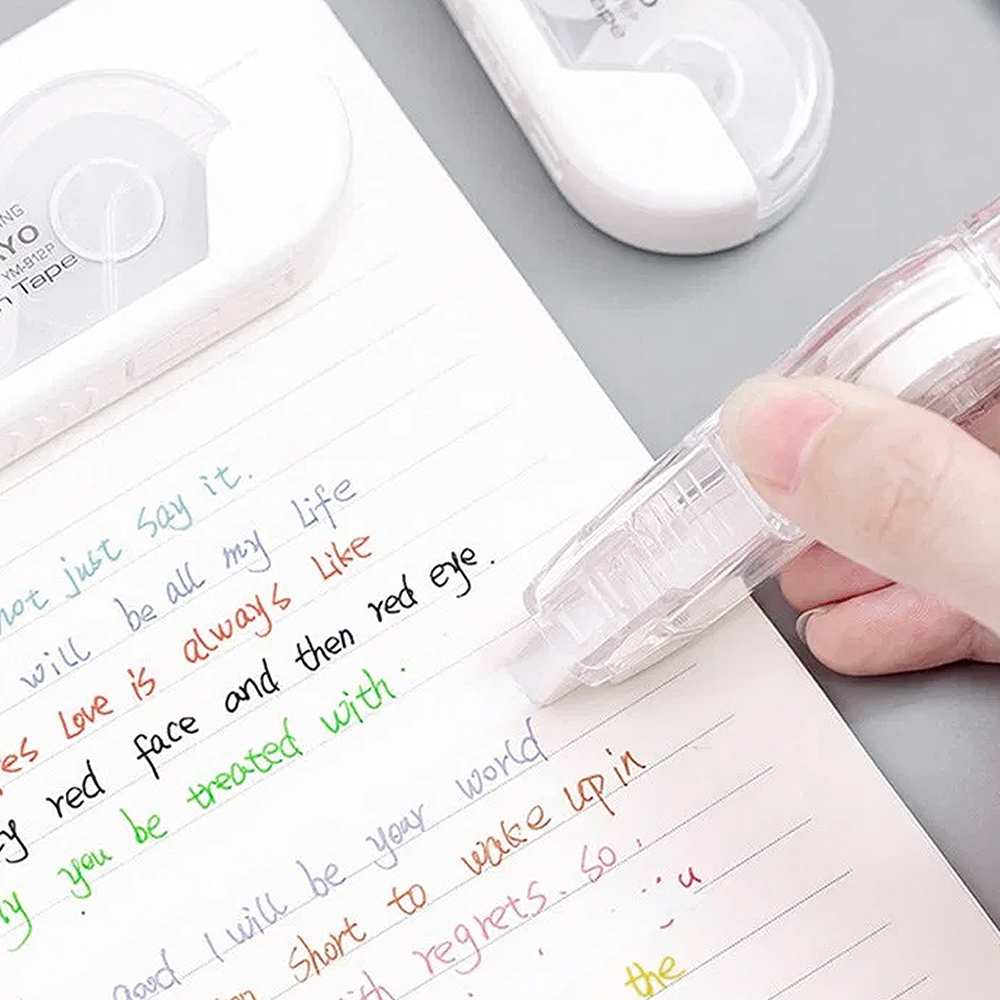 AYO
YM-912P
Tape
not just say it.
will be all my life
Love is always like
red face and then red eye.
you be treated with.
good I will be your world
short to wake up in
regrets. So
u
the